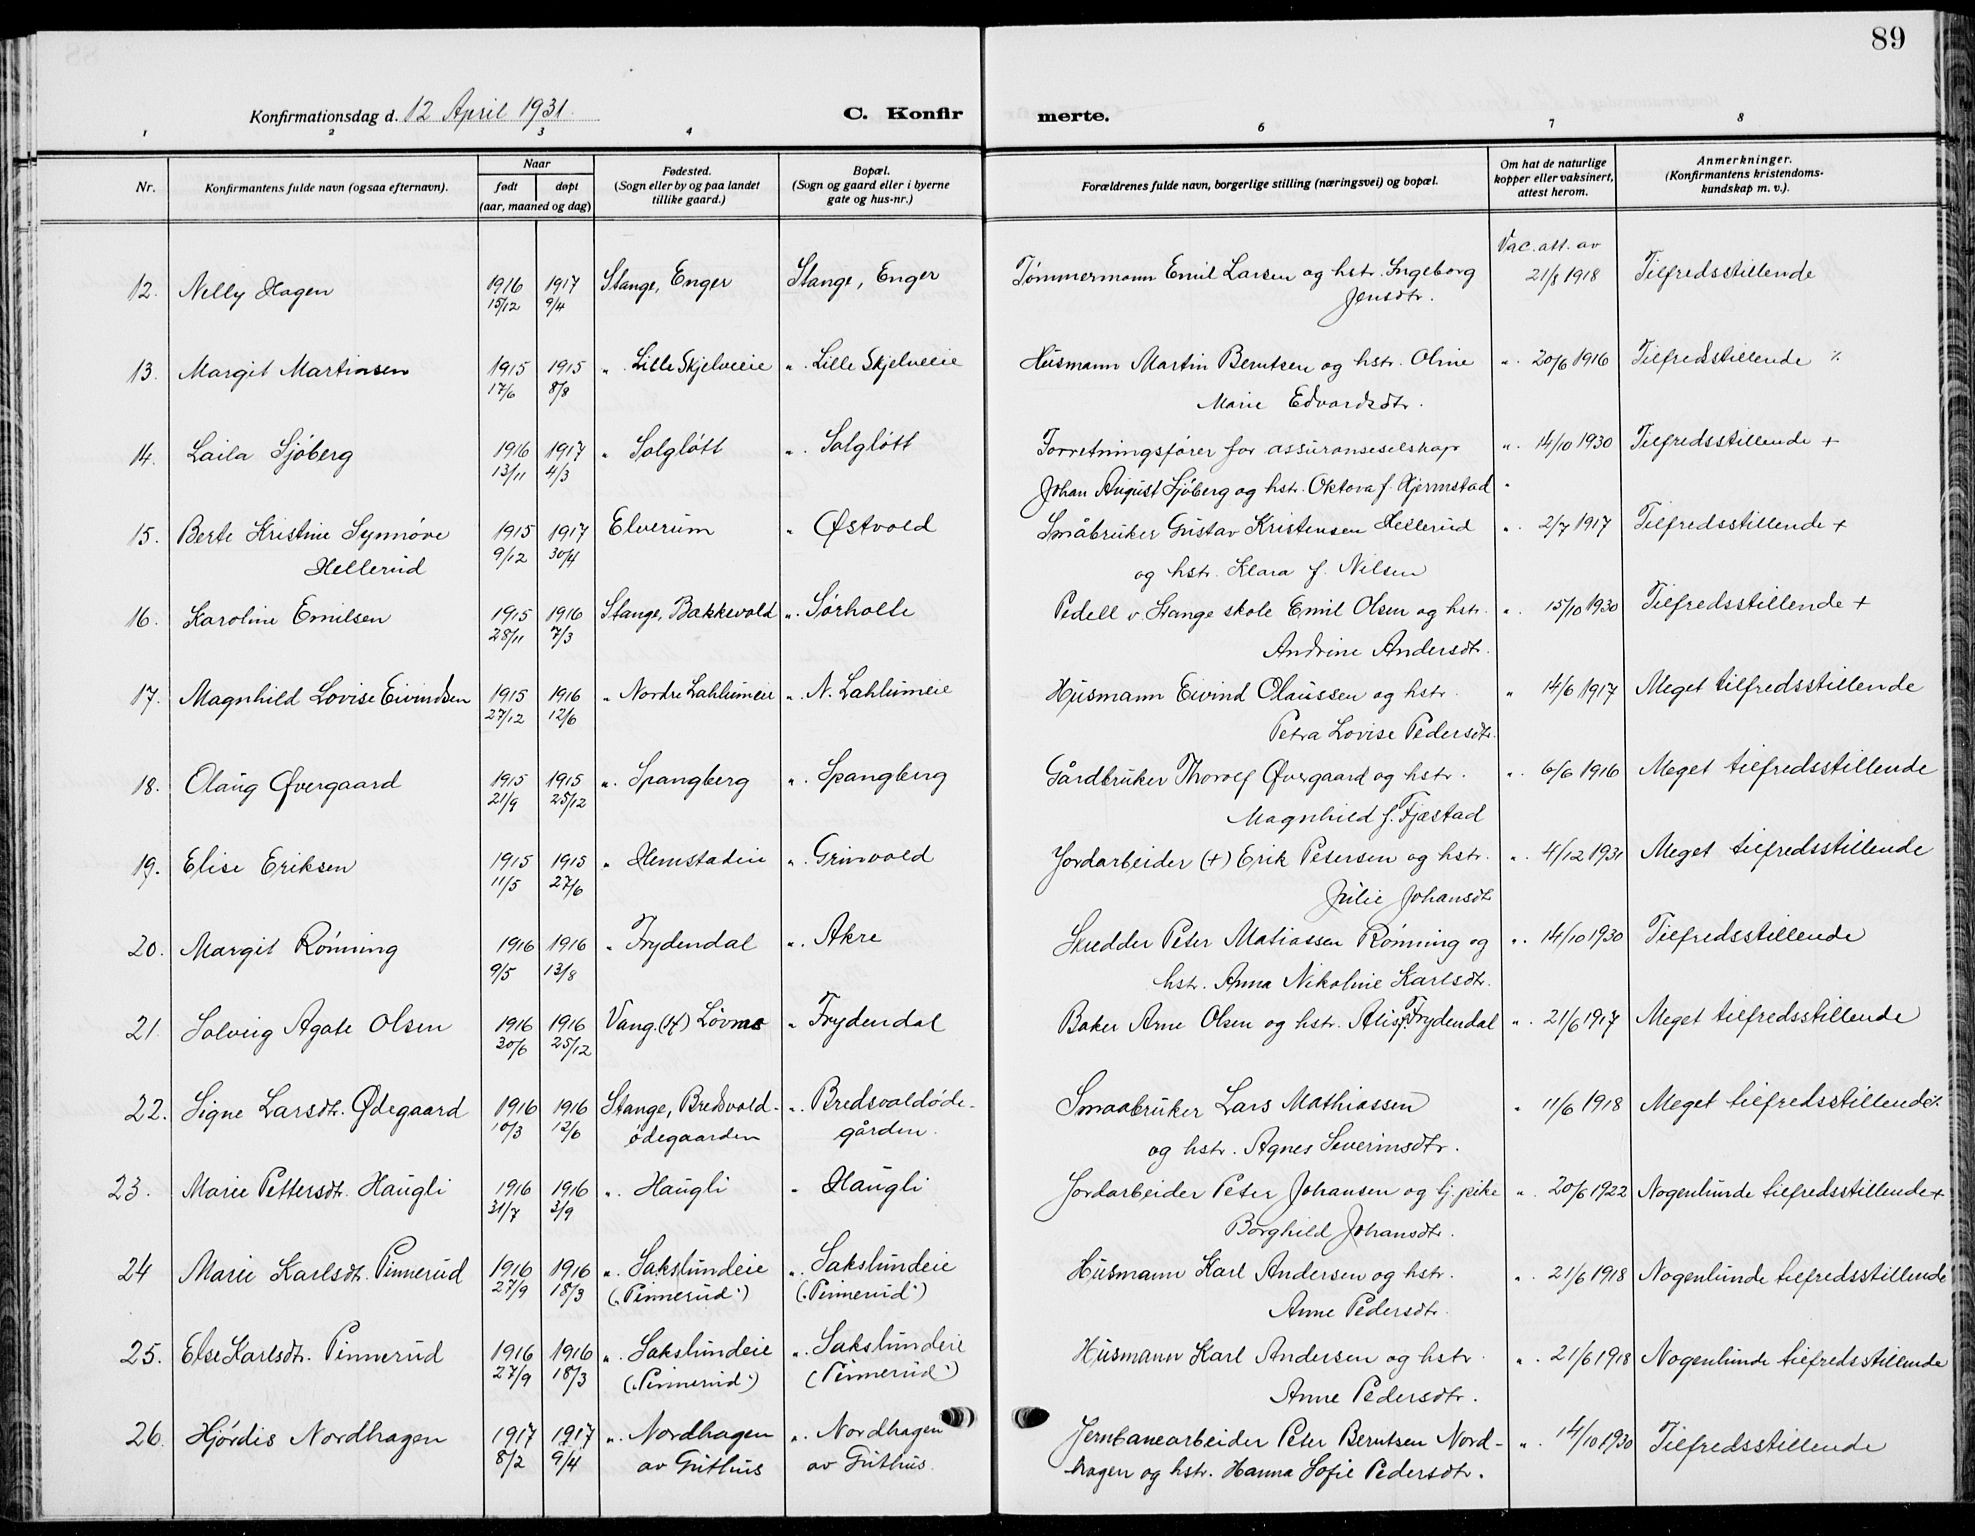 89
Konfirmationsdag d. 12 April 1931.
C. Konfir merte.
1 2 3 4 6 7 8
Nr.
Konfirmantens fulde navn (ogsaa efternavn).
Naar
født døpt
(aar, maaned og dag)
Fødested.
(Sogn eller by og paa landet
tillike gaard.)
Bopæl.
(Sogn og gaard eller i byerne
gate og hus-nr.)
Forældrenes fulde navn, borgerlige stilling (næringsvei) og bopæl.
Om hat de naturlige
kopper eller vaksinert,
attest herom.
Anmerkninger.
(Konfirmantens kristendoms-
kundskap m. v.).
Vac. att. av
12. Nelly Hagen 1916 1917 Stange, Enger Stange, Enger Tømmermann Emil Larsen og hstr. Ingeborg 21/8 1918 Tilfredsstillende
15/12 9/4 Jensdtr.
13. Margit Martinsen 1915 1915 " Lille Skjelveeie " Lille Skjelveeie Husmann Martin Berntsen og hstr. Oline " 20/6 1916 Tilfredsstillende %
17/6 8/8 Marie Edvardsdtr.
14. Laila Sjøberg 1916 1917 " Solgløtt " Solgløtt Forretningsfører for assuranseselskap " 14/10 1930 Tilfredsstillende +
13/11 4/3 Johan August Sjøberg og hstr. Oktova f. Kjermstad "
15. Berte Kristine Synnøve 1915 1917 Elverum " Østvold Småbruker Gustav Kristensen Hellerud " 2/7 1917 Tilfredsstillende +
Hellerud 9/12 30/4 og hstr. Klara f. Nilsen
16. Karoline Emilsen 1915 1916 Stange, Bakkevold " Sørholte Pedell v. Stange skole Emil Olsen og hstr. " 15/10 1930 Tilfredsstillende +
28/11 7/3 Andrine Andersdtr.
17. Magnhild Lovise Eivindsen 1915 1916 " Nordre Lahlumeie " N. Lahlumeie Husmann Eivind Olaussen og hstr. " 14/6 1917 Meget tilfredsstillende
27/12 12/6 Petra Lovise Pedersdtr.
18. Olaug Øvergaard 1915 1915 " Spangberg " Spangberg Gårdbruker Thorolf Øvergaard og hstr. " 6/6 1916 Meget tilfredsstillende
21/9 25/12 Magnhild f. Fjæstad
19. Elise Eriksen 1915 1915 " Hemstadeie " Grinvold Jordarbeider (+) Erik Petersen og hstr. " 4/12 1931 Meget tilfredsstillende
11/5 27/6 Julie Johansdtr
20. Margit Rønning 1916 1916 " Frydendal " Akre Skredder Peter Matiassen Rønning og " 14/10 1930 Tilfredsstillende
9/5 13/8 hstr. Anna Nikoline Karlsdtr.
21. Solveig Agate Olsen 1916 1916 Vang. (H) Løvnes " Frydendal Baker Arne Olsen og hstr. Alis f. Frydendal " 21/6 1917 Meget tilfredsstillende
30/6 25/12
22. Signe Larsdtr. Ødegaard 1916 1916 Stange, Bredsvold- " Bredsvoldøde- Smaabruker Lars Mathiassen " 11/6 1918 Meget tilfredsstillende %
10/3 12/6 ødegaarden gården. og hstr. Agnes Severinsdtr.
23. Marie Pettersdtr. Haugli 1916 1916 " Haugli " Haugli Jordarbeider Peter Johansen og tj. pike " 20/6 1922 Nogenlunde tilfredsstillende +
31/7 3/9 Borghild Johansdtr.
24 Marie Karlsdtr. Pinnerud 1916 1916 " Sakslundeie " Sakslundeie Husmann Karl Andersen og hstr. " 21/6 1918 Nogenlunde tilfredsstillende
27/9 18/3 ("Pinnerud") ("Pinnerud") Anne Pedersdtr.
25. Else Karlsdtr. Pinnerud 1916 1916 " Sakslundeie " Sakslundeie Husmann Karl Andersen og hstr. " 21/6 1918 Nogenlunde tilfredsstillende
27/9 18/3 ("Pinnerud") ("Pinnerud") Anne Pedersdtr.
26. Hjørdis Nordhagen 1917 1917 " Nordhagen " Nordhagen Jernbanearbeider Peter Berntsen Nord- " 14/10 1930 Tilfredsstillende
8/2 9/4 av Guthus av Guthus. hagen og hstr. Hanna Sofie Pedersdtr.